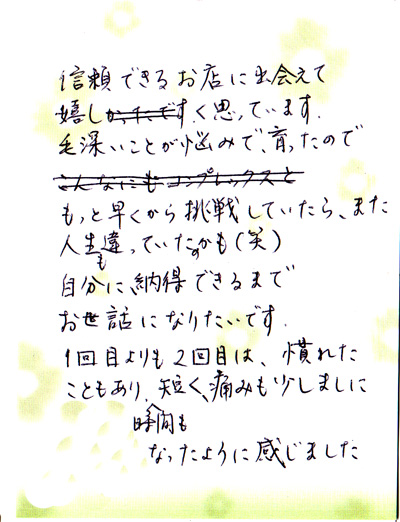 信頼できるお店に出会えて
嬉しかったですく思っています.
毛深いことが悩みで、育ったので
こんなにもコンプレックスと
もっと早くから挑戦していたら、また
人生も違っていたのかも(笑)
自分に、納得できるまで
お世話になりたいです.
1回目よりも2回目は、慣れた
こともあり、時間も短く、痛みも少しましに
なったように感じました